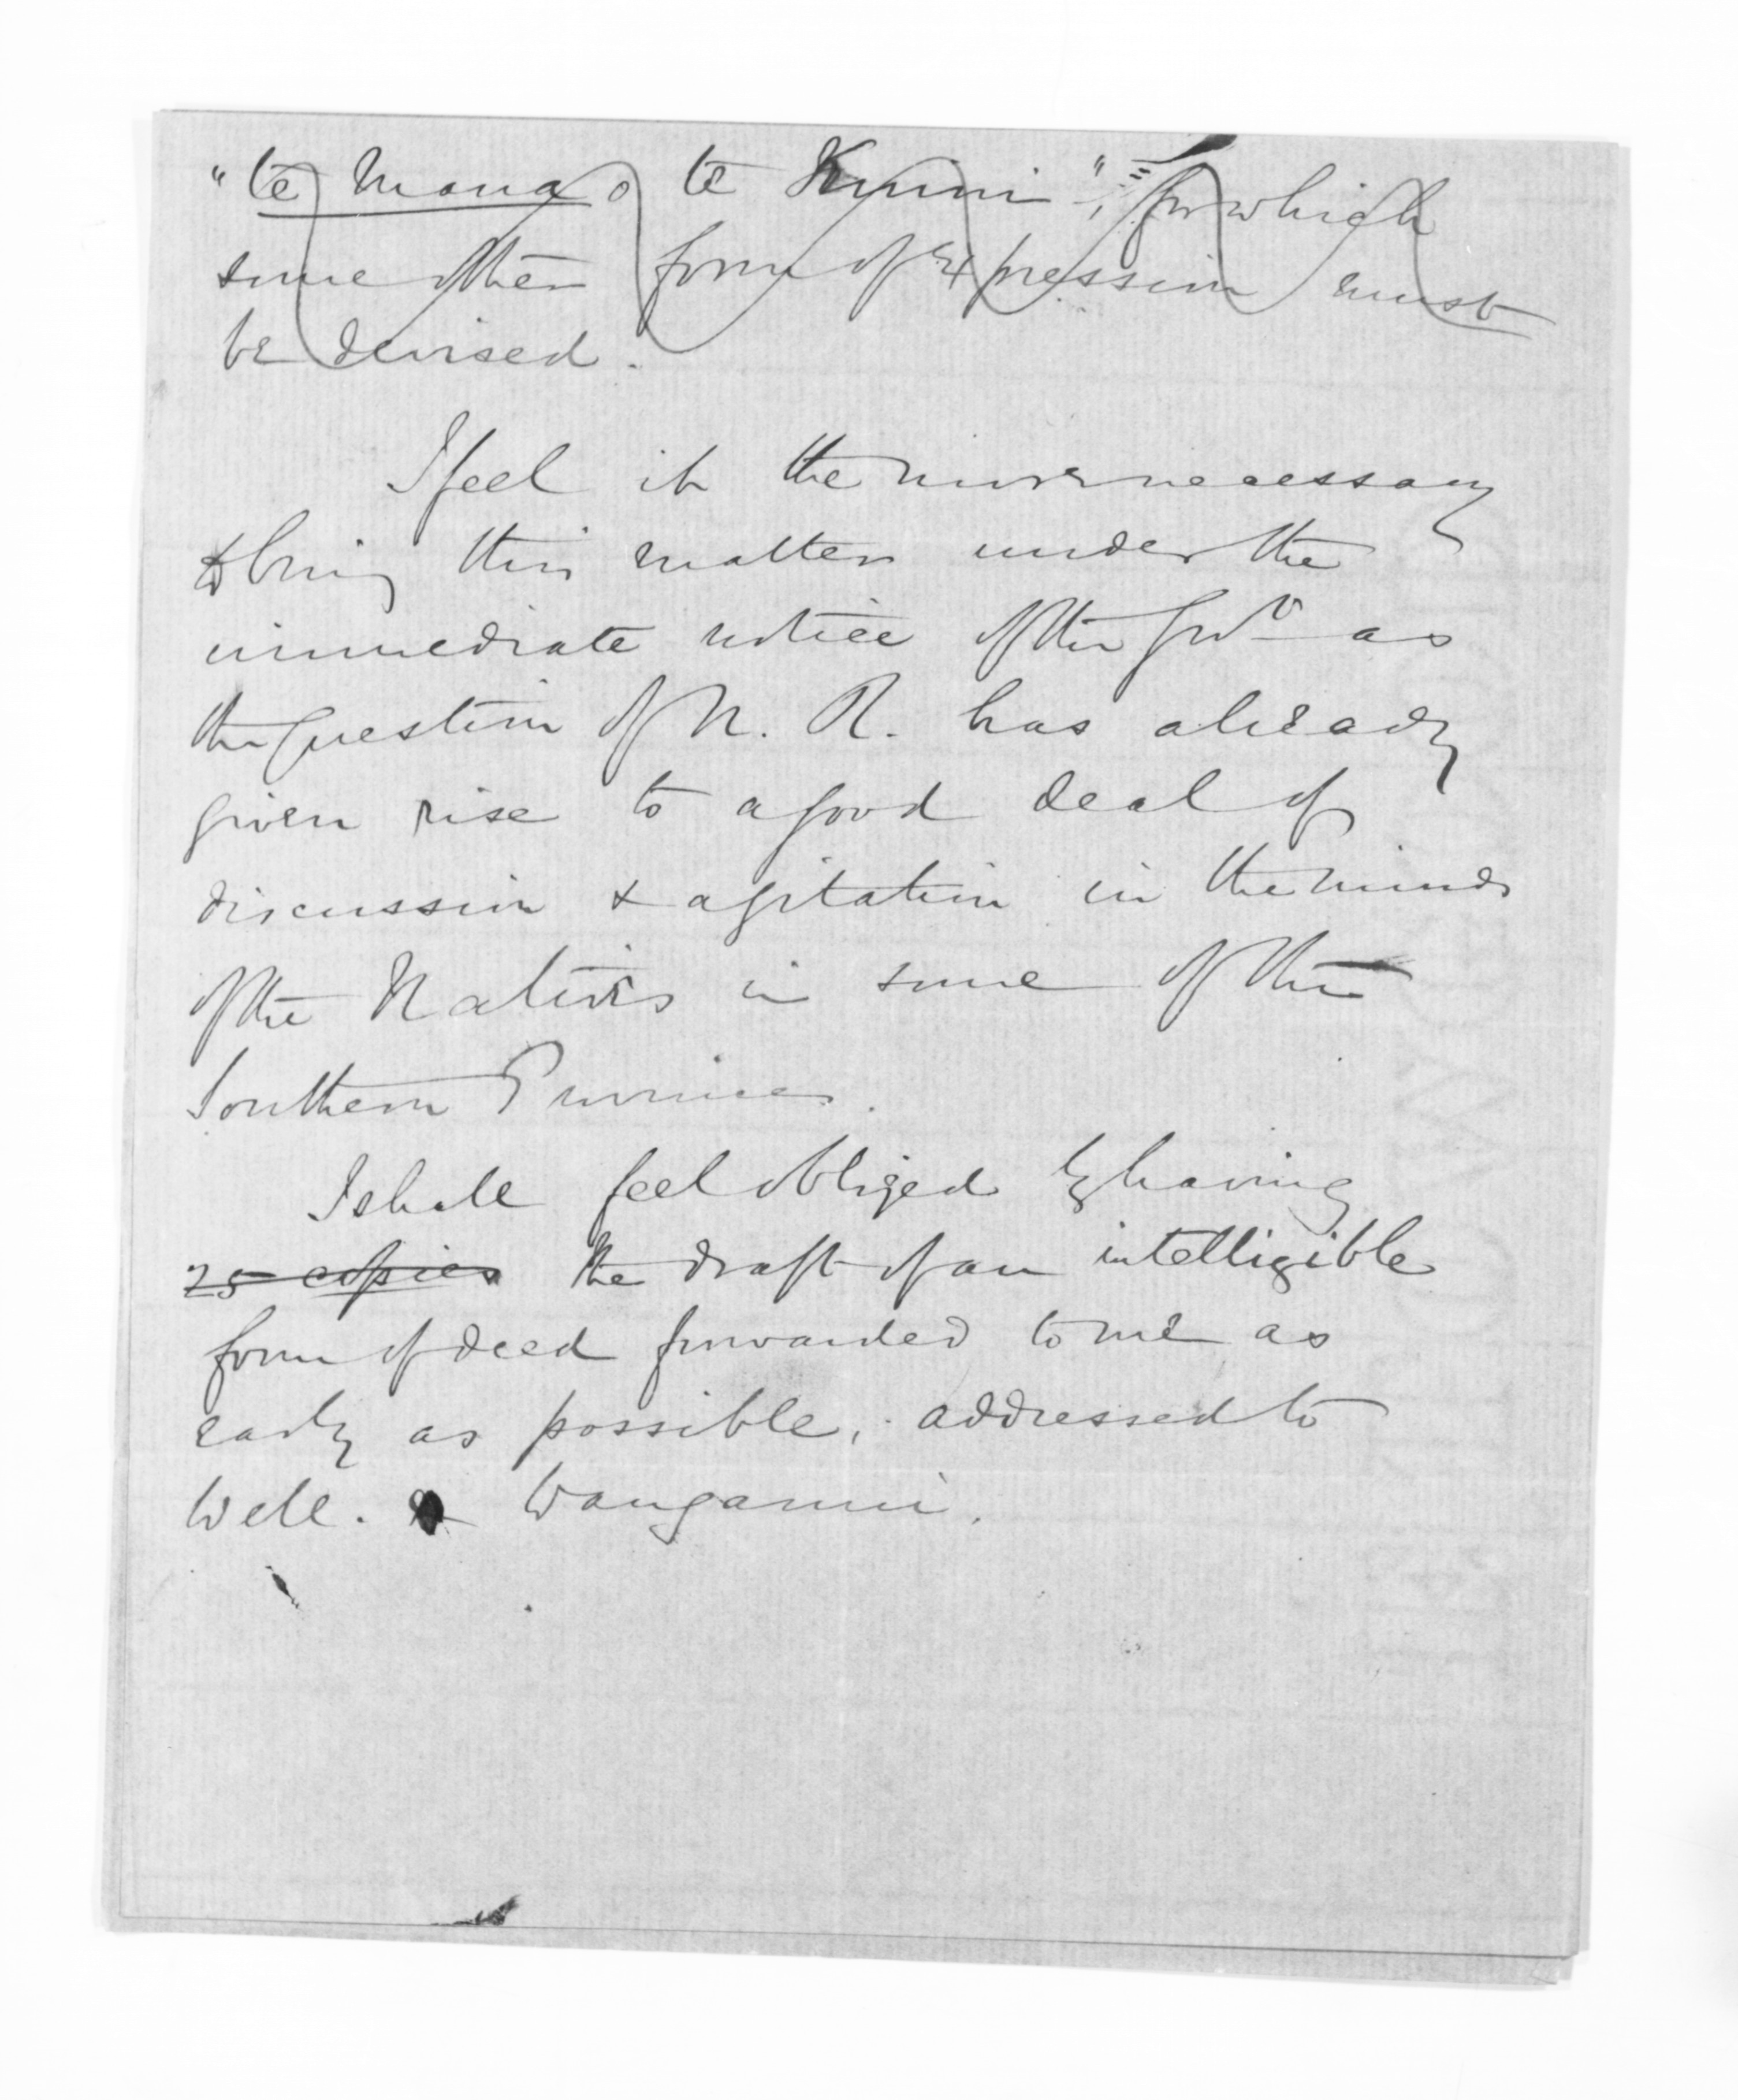 "te Mana o te Kuini"; for which
some other form of expression must
be devised.
I feel it the more necessary
to bring this matter under the
immediate notice of the Govt as
the question of N. R. has already
given rise to a good deal of
discussion & agitation in the minds
of the Natives in some of the
Southern Provinces.
I shall feel obliged by having
25 copies the draft of an intelligible
form of deed forwarded to me as
early as possible, addressed to
Well. Wanganui.